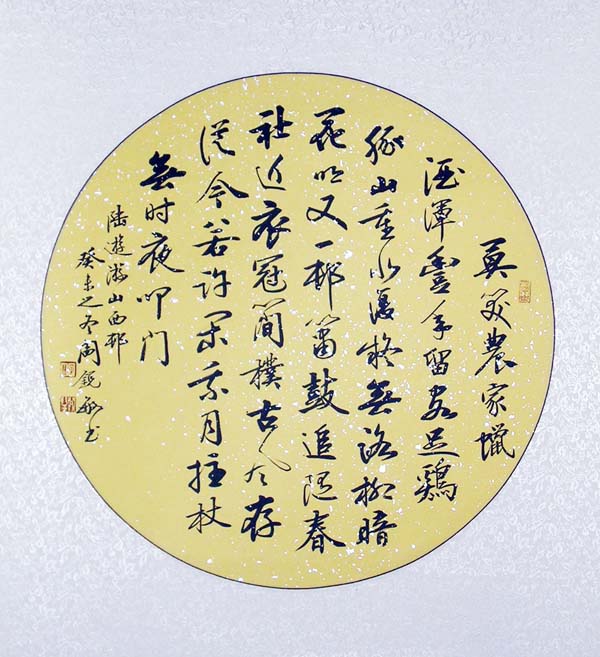 莫笑農家蠟
酒渾豐年留客足鷄
豚山重水復疑無路柳暗
花明又一邨簫鼓追隨春
社近衣冠簡樸古風存
從今若许閑乘月拄杖
無时夜叩门
陆遊游山西邨
癸未之冬周锐敏书